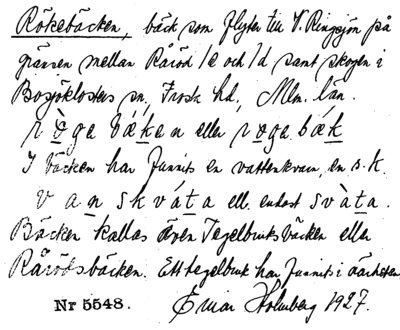 Rökebäcken, bäck som flyter till V. Ringsjön på
gränsen mellan Råröd 1/e och 1/d samt skogen i
Bosjöklosters sn, Frosta hd, Mlm. län.
rö̱ga bä́ḵen eller rö̱ga bä́ḵ
I bäcken har funnits en vattenkvarn, en s.k.
vanskváṯa ell. endast svàṯa.
Bäcken kallas även Tegelbruksbäcken eller
Rårödsbäcken. Ett tegelbruk har funnits i närheten.
Nr 5548. Einar Holmberg 1927.